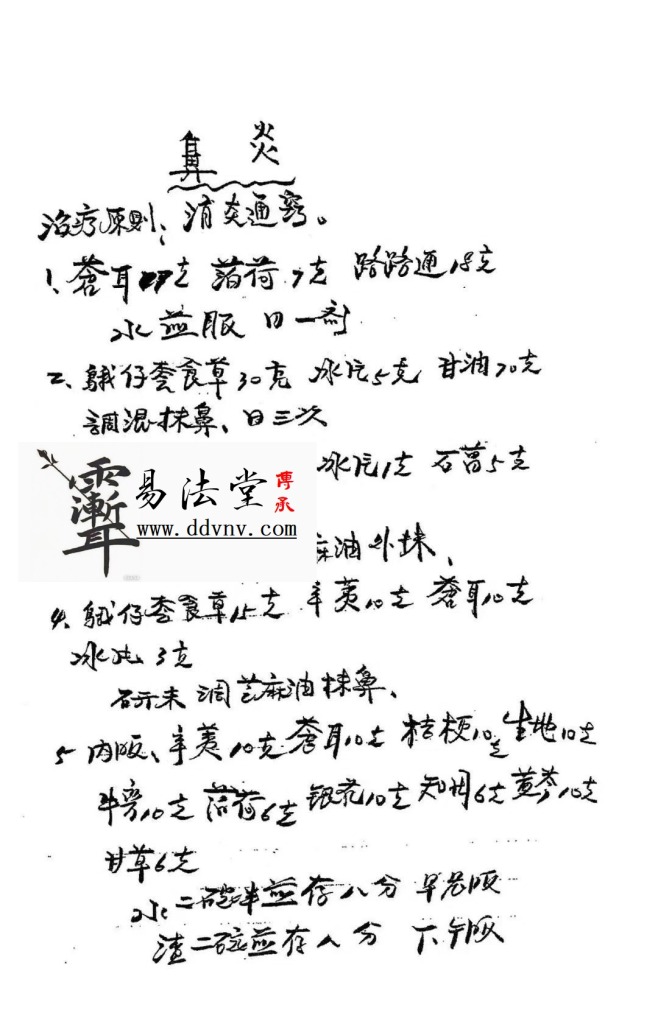 鼻炎
治疗原则：消炎通窍。
1、蒼耳 克 薄荷7克 路路通15克
水煎服 日一剂
2、鵝仔 食草30克 冰片5克 甘油70克
調混抹鼻、日三次
冰片1克 石膏5克
易法堂 傳承
www.ddvnv.com
麻油外抹、
4、鵝仔 食草15克 辛荑10克 蒼耳10克
冰片3克
研末 调芝麻油抹鼻、
5 内服、辛荑10克 蒼耳10克 桔梗10克 生地10克
牛旁10克 薄荷6克 银花10克 知母6克 黄芩10克
甘草6克
水二碗半煎存八分 早 服
渣二碗煎存八分 下午服